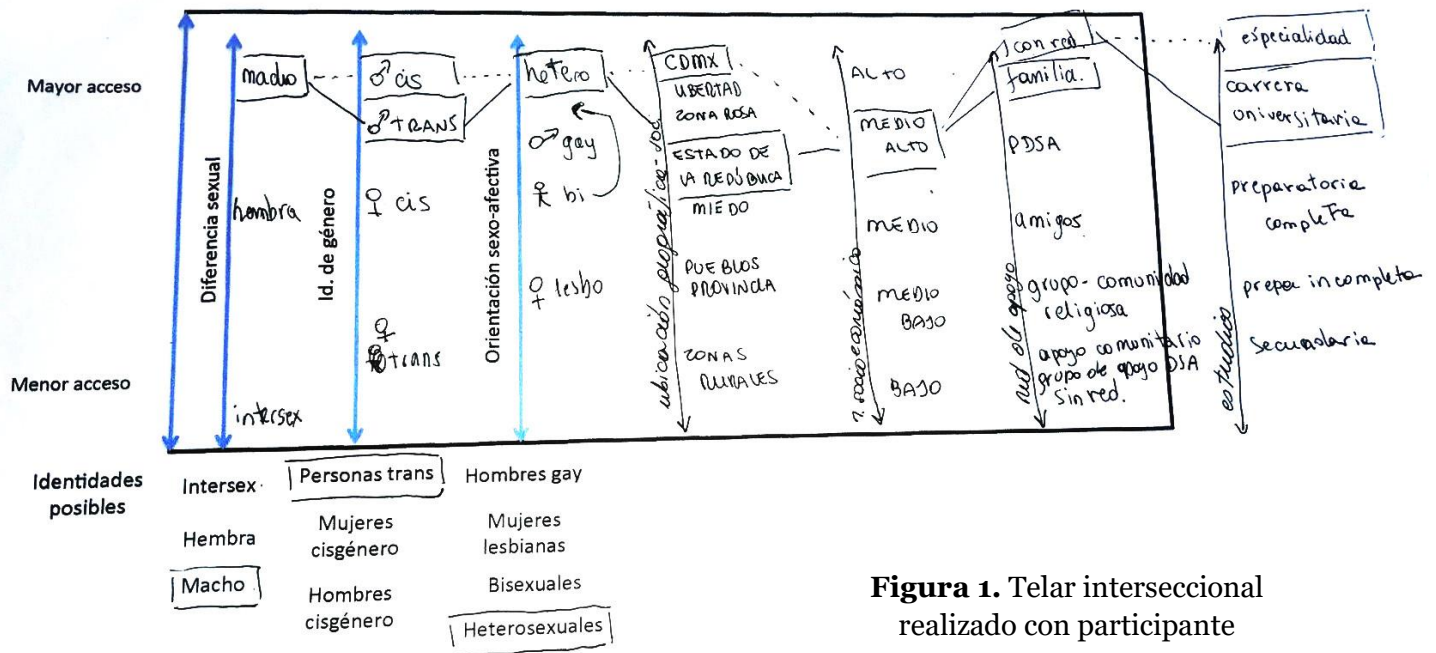 Mayor acceso
Menor acceso
Diferencia sexual
macho
hembra
intersex
Id. de género
♂ cis
♂ TRANS
♀ cis
♀
trans
Orientación sexo-afectiva
hetero
♂ gay
bi
♀ lesbo
ubicación geográfica-soc
CDMX
LIBERTAD
ZONA ROSA
ESTADO DE
LA REPÚBLICA
MIEDO
PUEBLOS
PROVINCIA
ZONAS
RURALES
n. socioeconómico
ALTO
MEDIO
ALTO
MEDIO
MEDIO
BAJO
BAJO
red de apoyo
con red.
familia.
PDSA
amigos
grupo-comunidad
religiosa
apoyo comunitario
grupo de apoyo DSA
sin red.
estudios
especialidad
carrera
universitaria
preparatoria
completa
prepa incompleta
secundaria
Identidades
posibles
Intersex
Hembra
Macho
Personas trans
Mujeres
cisgénero
Hombres
cisgénero
Hombres gay
Mujeres
lesbianas
Bisexuales
Heterosexuales
Figura 1. Telar interseccional
realizado con participante